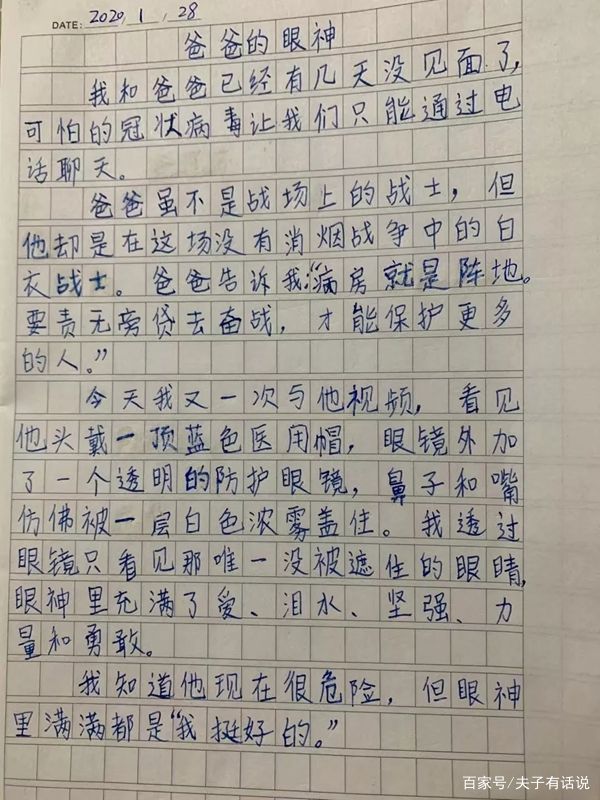 DATE: 2020, 1, 28
爸爸的眼神
我和爸爸已经有几天没见面了,
可怕的冠状病毒让我们只能通过电
话聊天。
爸爸虽不是战场上的战士，但
他却是在这场没有消烟战争中的白
衣战士。爸爸告诉我:“病房就是阵地。
要责无旁贷去奋战，才能保护更多
的人。”
今天我又一次与他视频，看见
他头戴一顶蓝色医用帽，眼镜外加
了一个透明的防护眼镜，鼻子和嘴
仿佛被一层白色浓雾盖住。我透过
眼镜只看见那唯一没被遮住的眼睛,
眼神里充满了爱、泪水、坚强、力
量和勇敢。
我知道他现在很危险，但眼神
里满满都是“我挺好的。”
百家号/夫子有话说